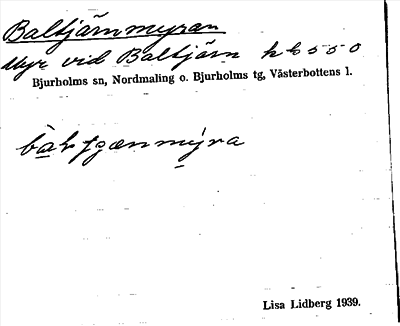 Baltjärnmyran
Myr vid Baltjärn hb 550
Bjurholms sn, Nordmaling o. Bjurholms tg, Västerbottens l.
Lisa Lidberg 1939.